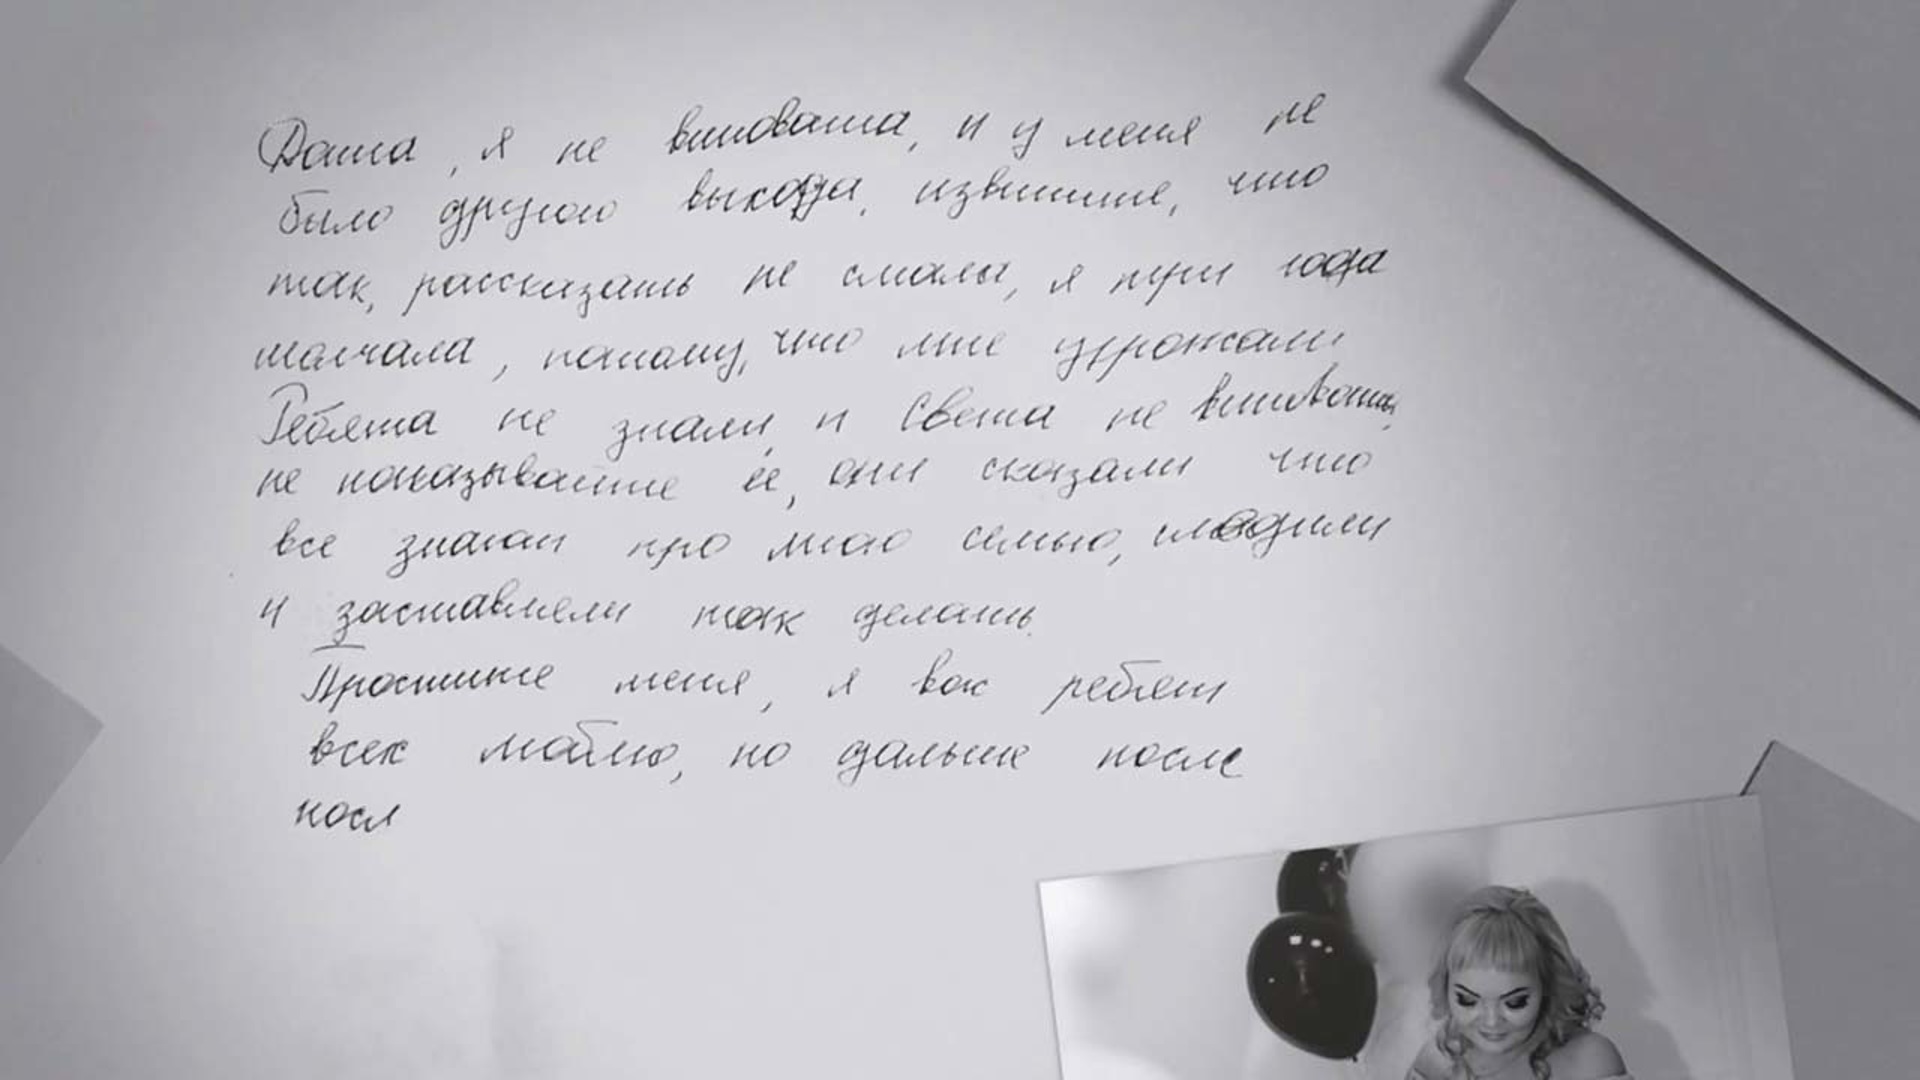 Даша, я не виновата, и у меня не
было другого выхода, извините, что
так, рассказать не смогла, я три года
молчала, потому, что мне угрожали
Ребята не знали, и Света не виновата,
не наказывайте её, они сказали что
все знают про мою семью, следили
и заставляли так делать.
Простите меня, я вас ребят
всех люблю, но дальше после
посл